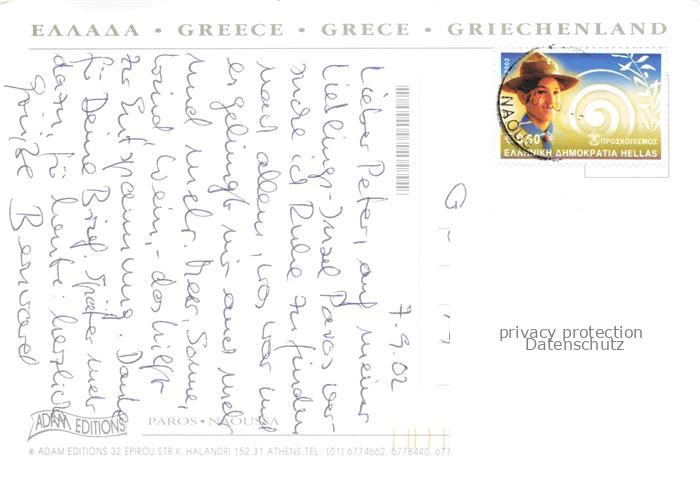 ΕΛΛΑΔΑ • GREECE • GRECE • GRIECHENLAND
2002
NAOUSA
60
ΠΡΟΣΚΟΠΙΣΜΟΣ
ΕΛΛΗΝΙΚΗ ΔΗΜΟΚΡΑΤΙΑ HELLAS
7.9.02
Lieber Peter, auf meiner
Lieblings-Insel Paros ver-
suche ich Ruhe zu finden
nach allem, was war und
es gelingt mir auch mehr
und mehr. Meer, Sonne,
Wind, Wein, - das hilft
zur Entspannung. Danke
für Deine Brief. Später mehr
dazu, für heute: herzliche
Grüße Bernward
G
privacy protection
Datenschutz
ADAM EDITIONS
PAROS • NAOUSSA
® ADAM EDITIONS 32 EPIROU STR K. HALANDRI 152 31 ATHENS TEL.: (01) 6774662, 6778440, 677